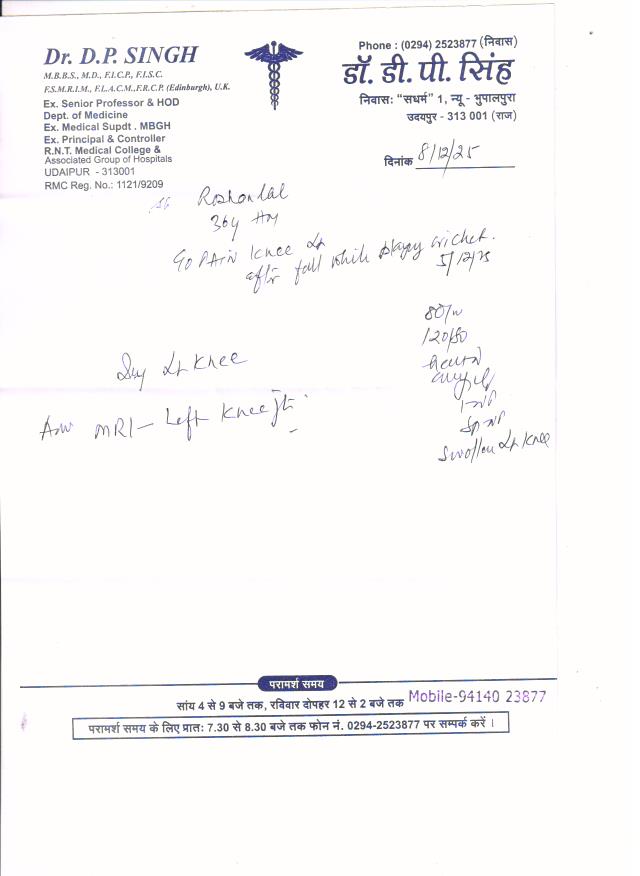 Dr. D.P. SINGH
M.B.B.S., M.D., F.I.C.P., F.I.S.C.
F.S.M.R.I.M., F.L.A.C.M.,F.R.C.P. (Edinburgh), U.K.
Ex. Senior Professor & HOD
Dept. of Medicine
Ex. Medical Supdt . MBGH
Ex. Principal & Controller
R.N.T. Medical College &
Associated Group of Hospitals
UDAIPUR - 313001
RMC Reg. No.: 1121/9209
Phone : (0294) 2523877 (निवास)
डॉ. डी. पी. सिंह
निवास: "सधर्म" 1, न्यू - भुपालपुरा
उदयपुर - 313 001 (राज)
दिनांक 8/12/25
Roshanlal
36y
PAIN Knee Lt
after fall while playing cricket.
5/12/25
80/m
120/80
Lt Knee
MRI - Left Knee Jt.
Swollen Lt Knee
परामर्श समय
सांय 4 से 9 बजे तक, रविवार दोपहर 12 से 2 बजे तक Mobile-94140 23877
परामर्श समय के लिए प्रात: 7.30 से 8.30 बजे तक फोन नं. 0294-2523877 पर सम्पर्क करें ।